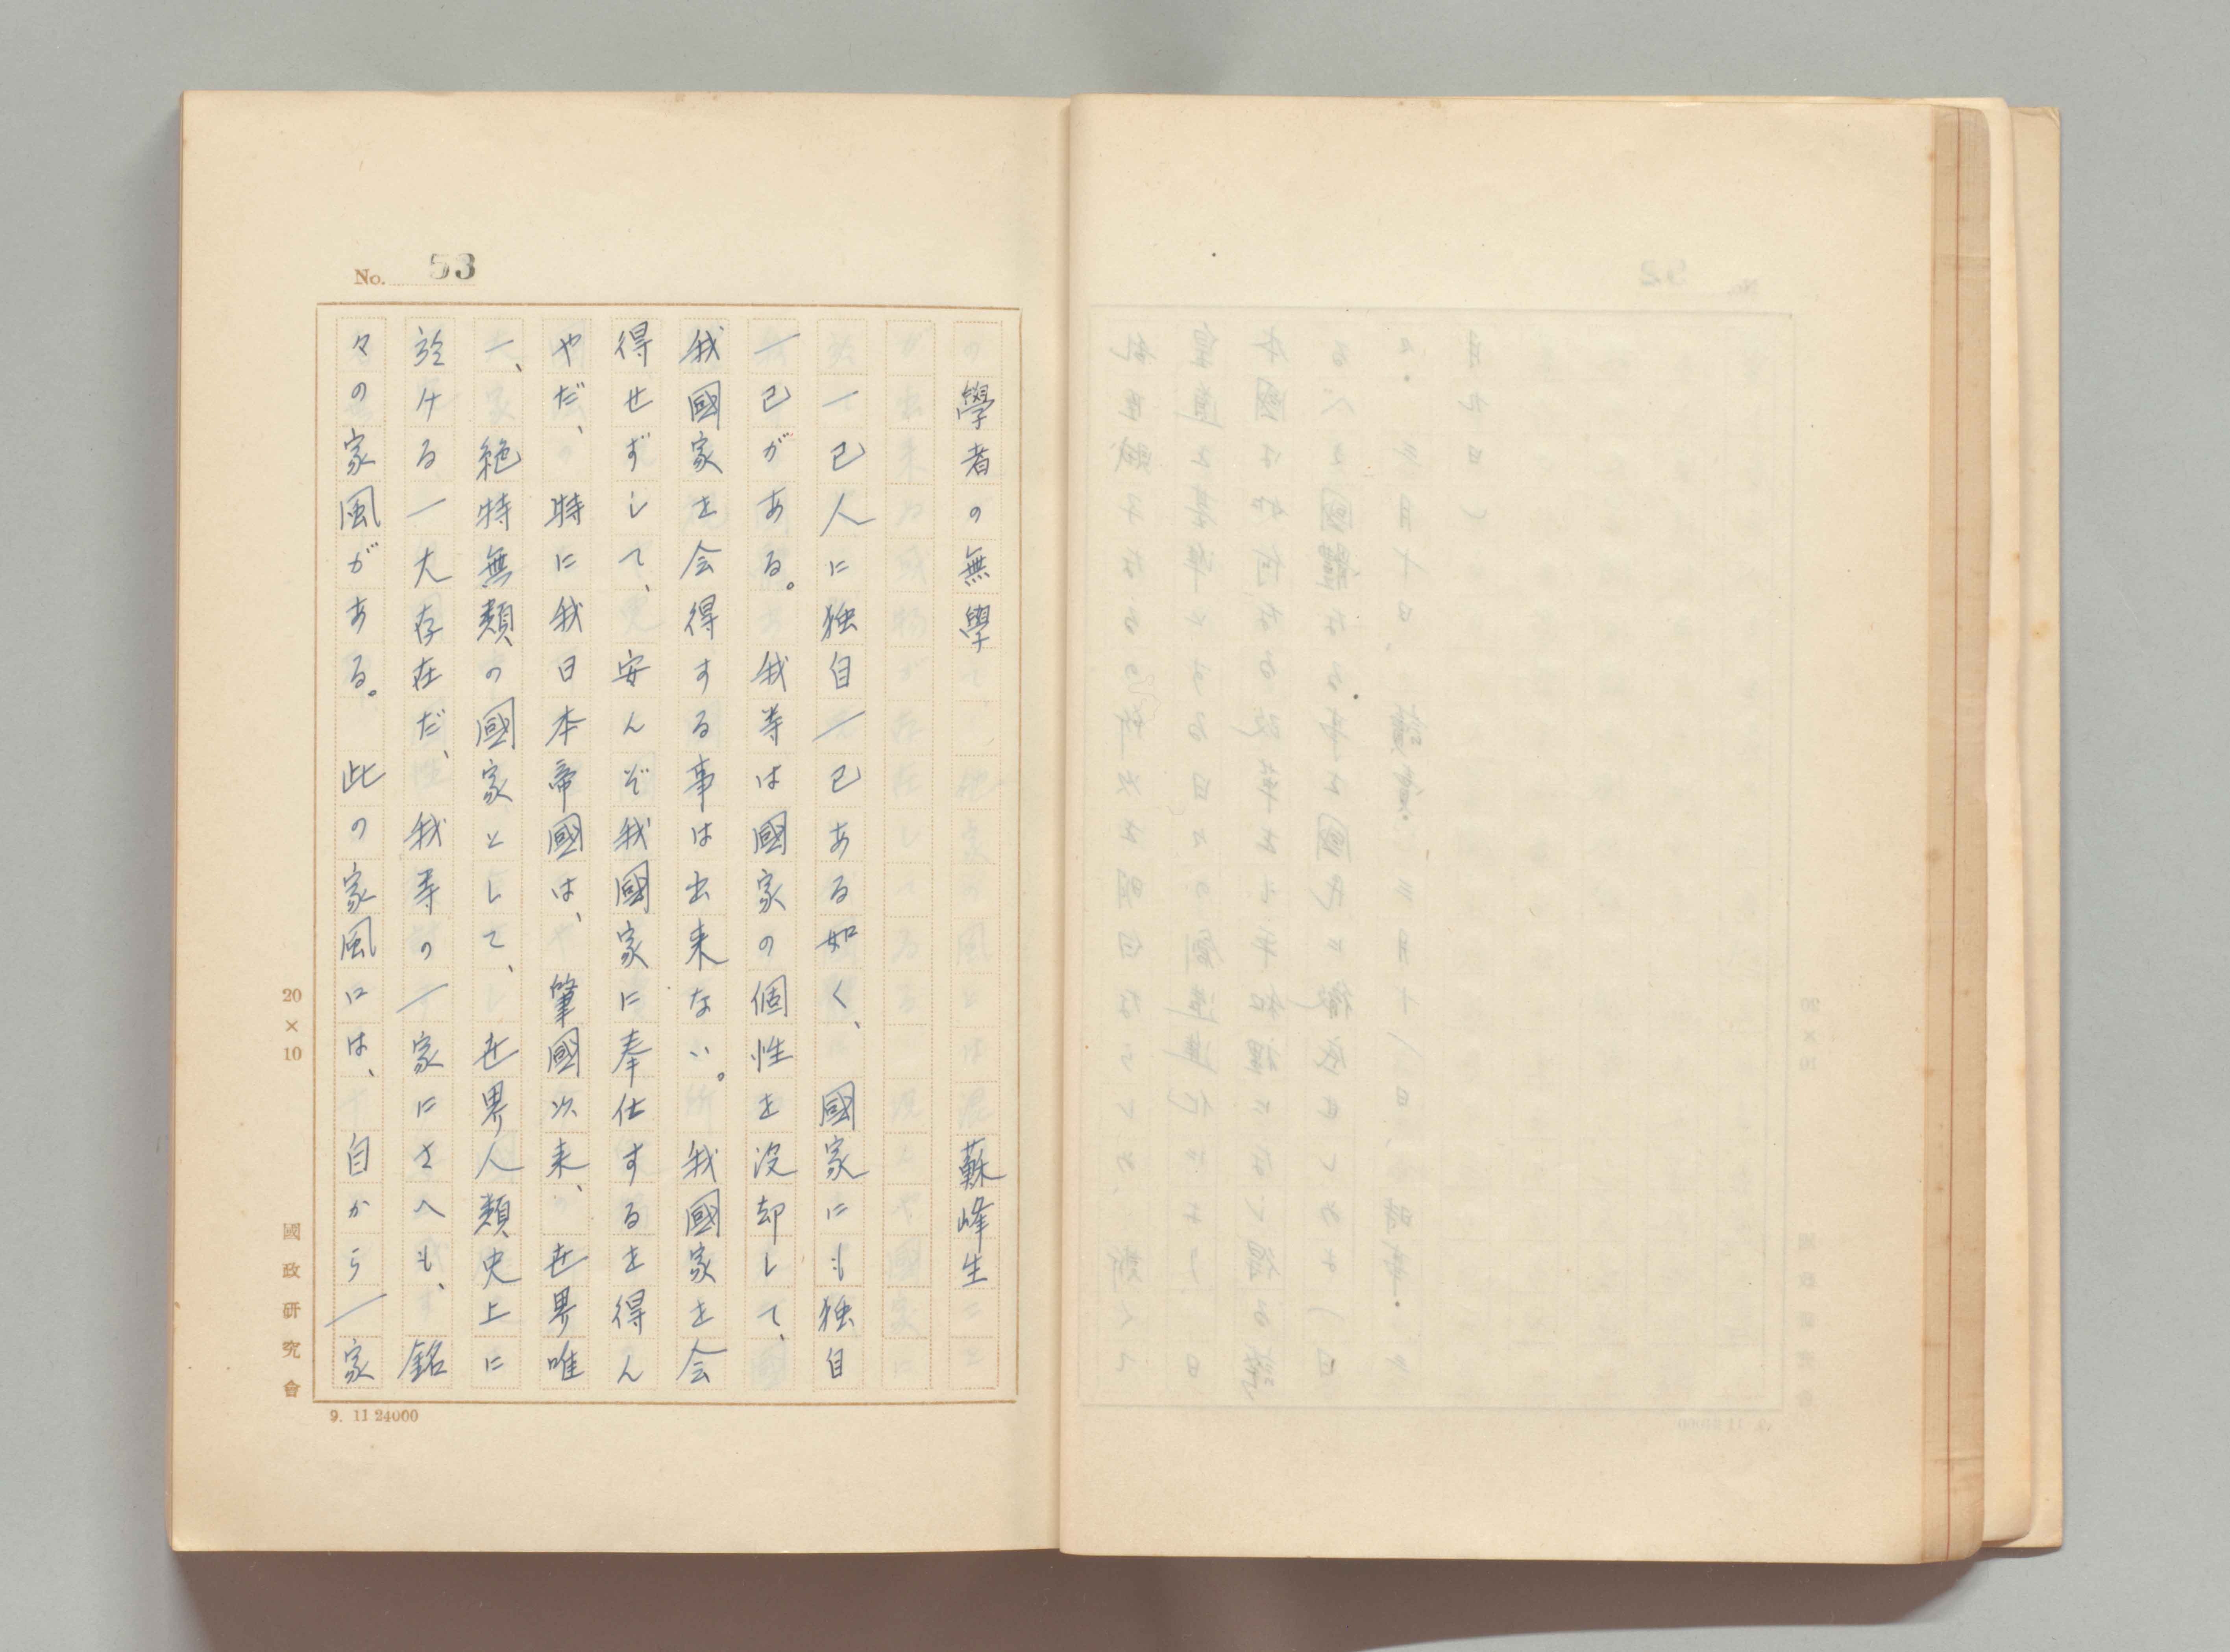 No. 53
學者の無學　蘇峰生
一已人に独自一已ある如く、國家にも独自
一已がある。我等は國家の個性を没却して、
我國家を会得する事は出来ない。我國家を会
得せずして、安んぞ我國家に奉仕するを得ん
やだ、特に我日本帝國は、肇國以来、世界唯
一、絶特無類の國家として、世界人類史上に
於ける一大存在だ、我等の一家にさへも、銘
々の家風がある。此の家風には、自から一家
20×10
國政研究會
9. 11 24000